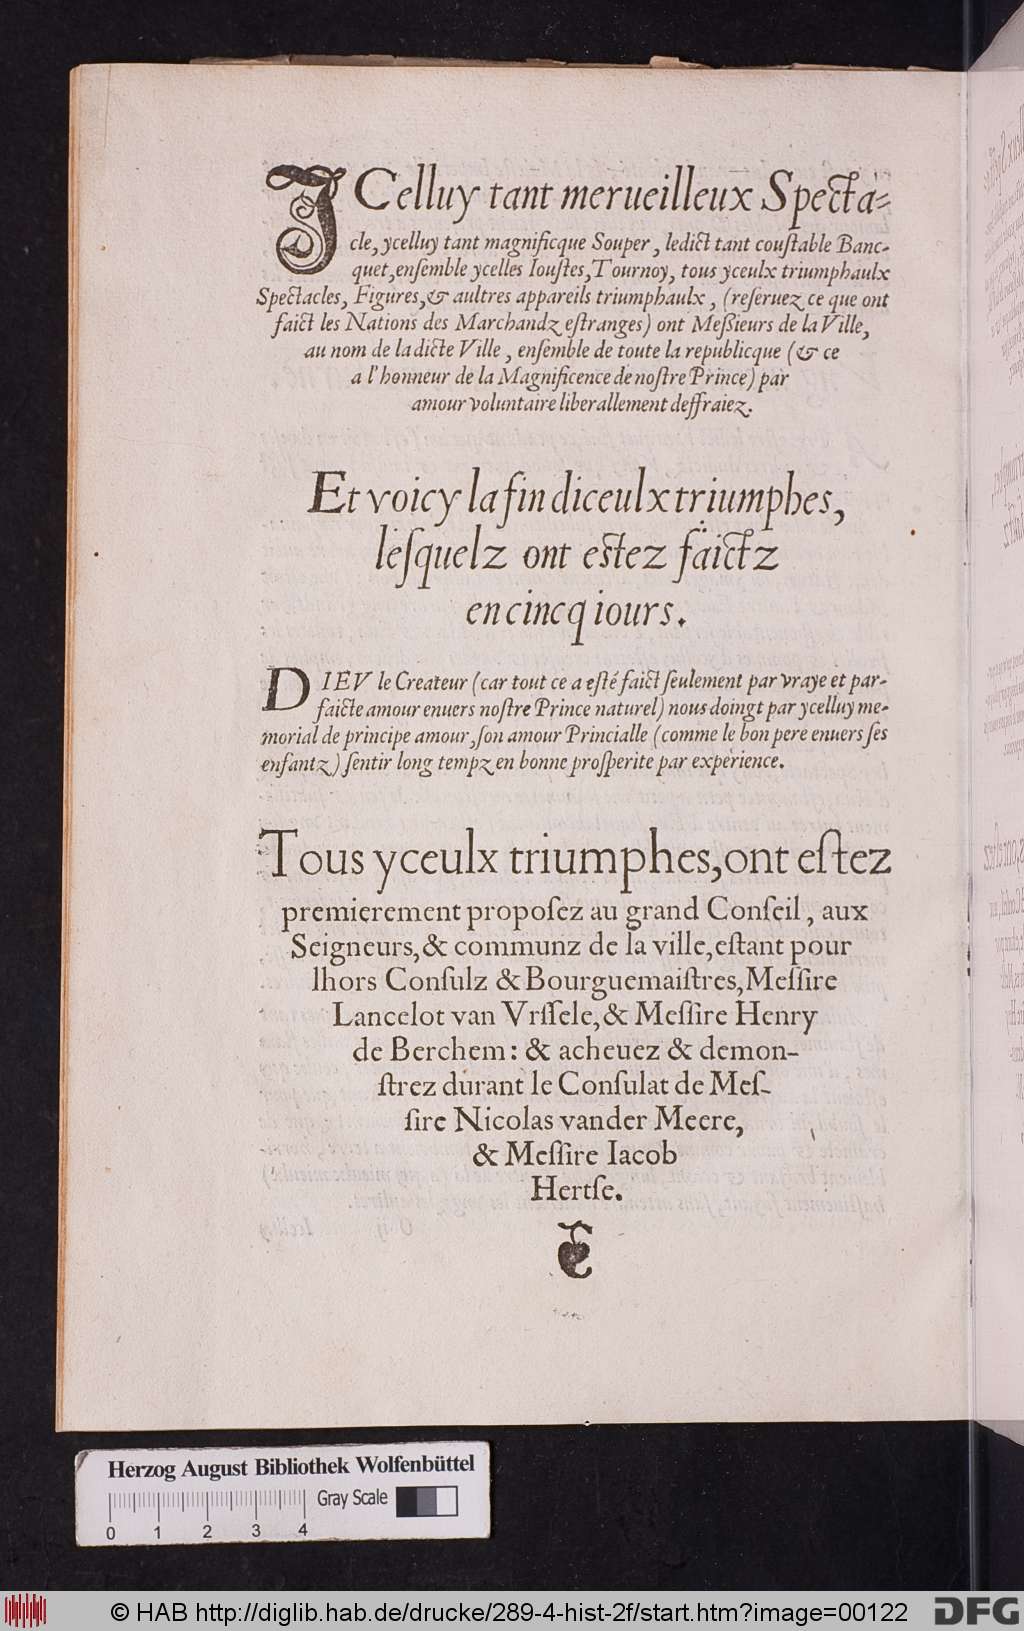 ICelluy tant merueilleux Specta-
cle, ycelluy tant magnificque Souper, ledict tant couſtable Banc-
quet, enſemble ycelles Iouſtes, Tournoy, tous yceulx triumphaulx
Spectacles, Figures, & aultres appareils triumphaulx, (reſeruez ce que ont
faict les Nations des Marchandz eſtranges) ont Meſſieurs de la Ville,
au nom de la dicte Ville, enſemble de toute la republicque (& ce
a l'honneur de la Magnificence de noſtre Prince) par
amour voluntaire liberallement deffraiez.
Et voicy la fin diceulx triumphes,
leſquelz ont eſtez faictz
en cincq iours.
DIEV le Createur (car tout ce a eſté faict ſeulement par vraye et par-
faicte amour enuers noſtre Prince naturel) nous doingt par ycelluy me-
morial de principe amour, ſon amour Princialle (comme le bon pere enuers ſes
enfantz) ſentir long tempz en bonne proſperite par experience.
Tous yceulx triumphes, ont eſtez
premierement propoſez au grand Conſeil, aux
Seigneurs, & communz de la ville, eſtant pour
lhors Conſulz & Bourguemaiſtres, Meſſire
Lancelot van Vrſſele, & Meſſire Henry
de Berchem: & acheuez & demon-
ſtrez durant le Conſulat de Meſ-
ſire Nicolas vander Meere,
& Meſſire Iacob
Hertſe.
Herzog August Bibliothek Wolfenbüttel
Gray Scale
0 1 2 3 4
© HAB http://diglib.hab.de/drucke/289-4-hist-2f/start.htm?image=00122
DFG